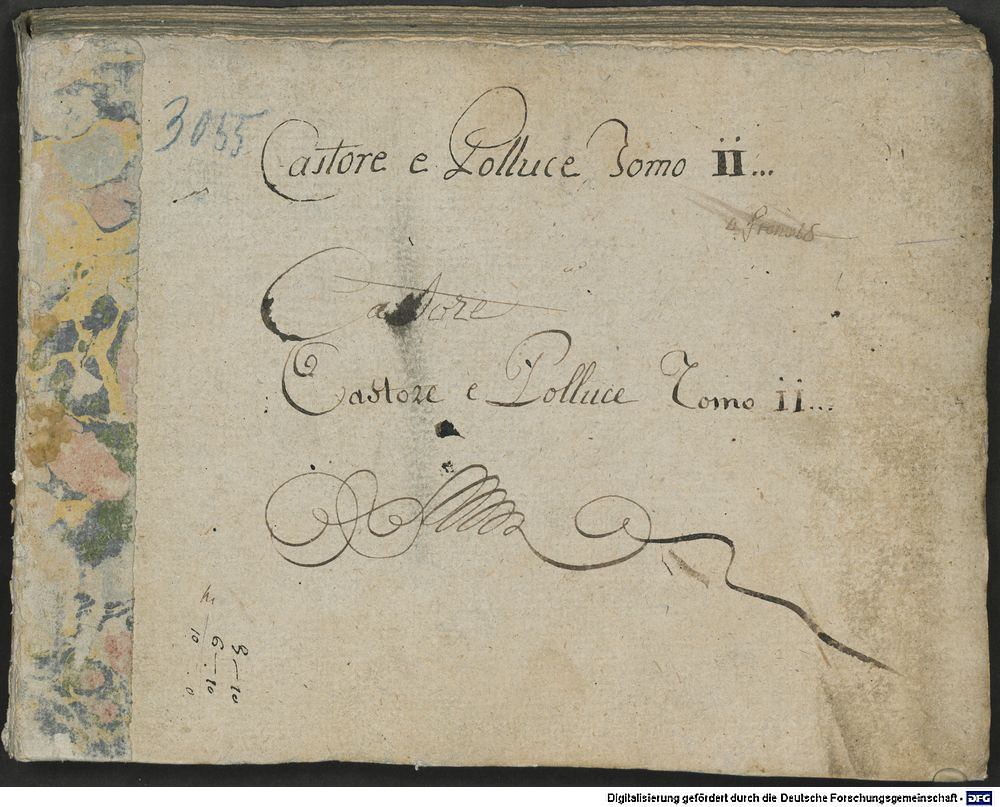 3055
Castore e Polluce Tomo II...
Castore
Castore e Polluce Tomo ii...
3—10
6—10
10
Digitalisierung gefördert durch die Deutsche Forschungsgemeinschaft - DFG